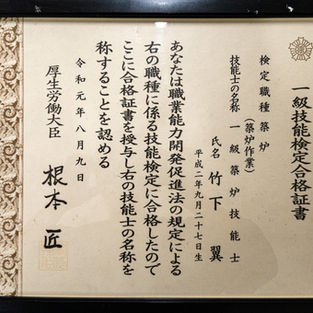 一級技能検定合格証書
検定職種 築炉
(築炉作業)
技能士の名称 一級築炉技能士
氏名 竹下 翼
平成二年九月二十七日生
あなたは職業能力開発促進法の規定による
右の職種に係る技能検定に合格したので
ここに合格証書を授与し右の技能士の名称を
称することを認める
令和元年八月九日
厚生労働大臣 根本 匠